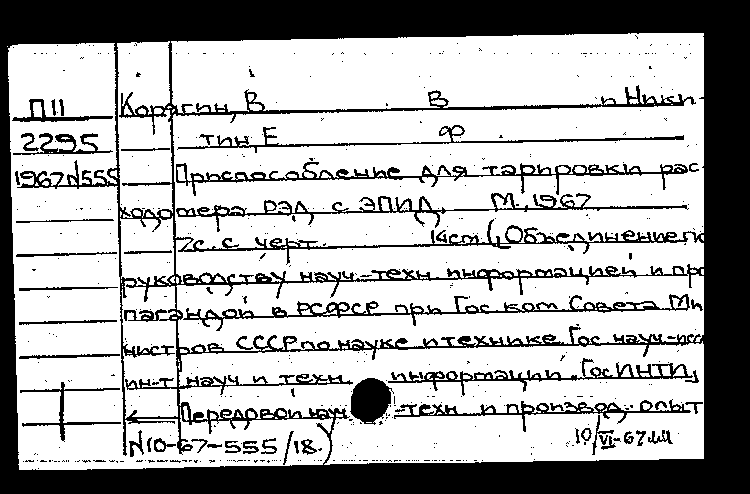 П11 Корягин, В В и Ники-
2295 тин, Е Ф
1967 N555 Приспособление для тарировки рас-
ходомера РЭД с ЭПИД. М., 1967
2с. с черт. 14см (Объединение по
руководству науч-техн информацией и про
пагандой в РСФСР при Гос ком Совета Ми
нистров СССР по науке и технике Гос науч-исс
ин-т науч и техн информации "ГосИНТИ"
Передовой науч -техн и производ. опыт
N10-67-555/18.) 10/VI-67